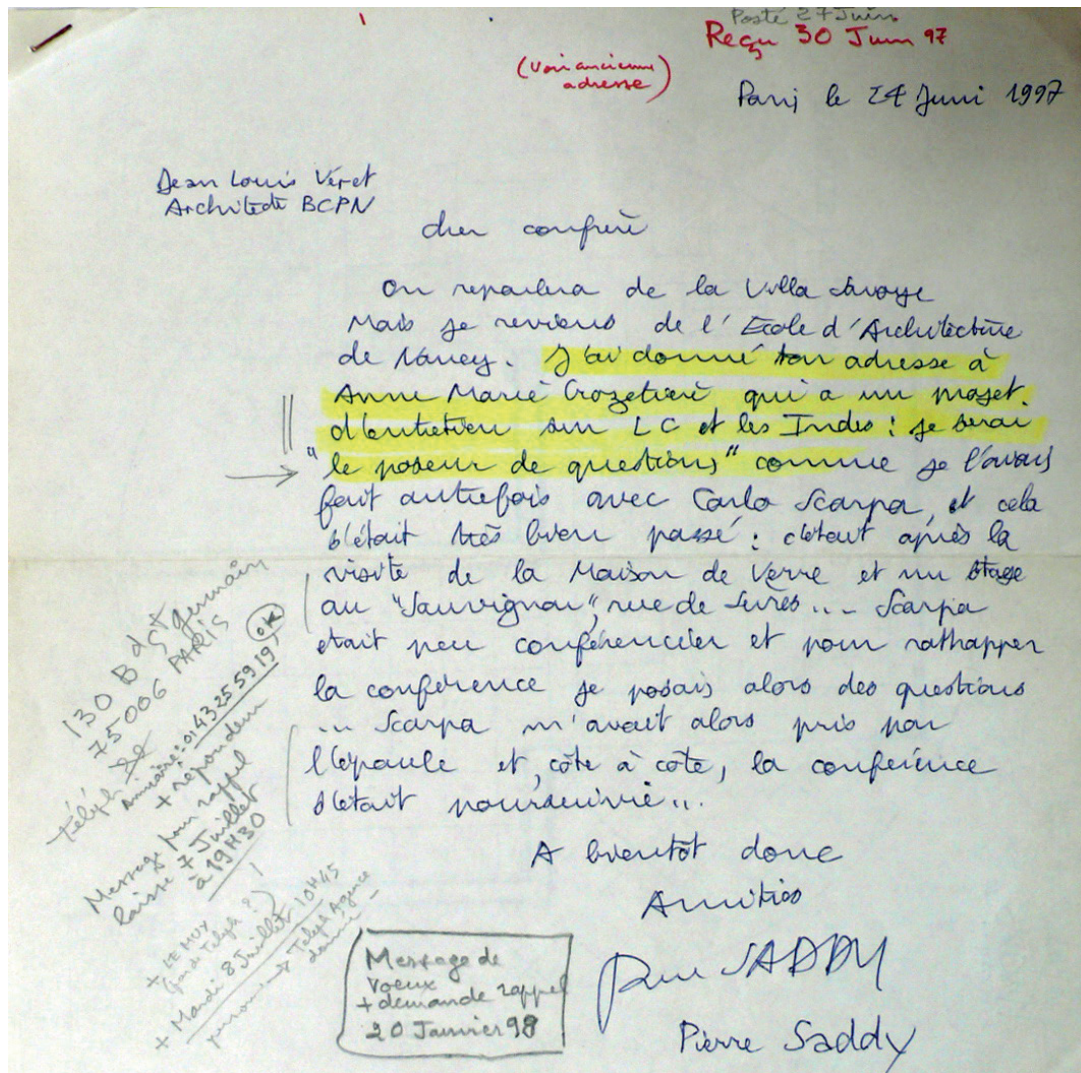 Posté 27 Juin
Reçu 30 Juin 97
(Voir ancienne
adresse)
Paris le 24 Juin 1997
Jean Louis Véret
Architecte BCPN
cher confrère
On reparlera de la Villa Savoye
Mais je reviens de l'Ecole d'Architecture
de Nancy. J'ai donné ton adresse à
Anne Marie Crozetière qui a un projet
d'entretien sur LC et les Indes : je serai
"le poseur de questions" comme je l'avais
fait autrefois avec Carlo Scarpa, et cela
s'était très bien passé : c'était après la
visite de la Maison de Verre et un stage
au "Sauvignon", rue de Sèvres... Scarpa
était peu conférencier et pour rattrapper
la conférence je posais alors des questions
... Scarpa m'avait alors pris par
l'épaule et, côte à côte, la conférence
s'était poursuivie...
A bientôt donc
Amitiés
Pierre SADDY
Pierre Saddy
130 Bd St germain
75006 PARIS
Téléph.
Annuaire : 01 43 25 59 19, OK
+ répondeur
Message pour rappel
laissé 7 Juillet
à 19H30
+ LE MUY
+ Mardi 8 Juillet 10H45
Téléph Agence
Message de
voeux
+ demande rappel
20 Janvier 98